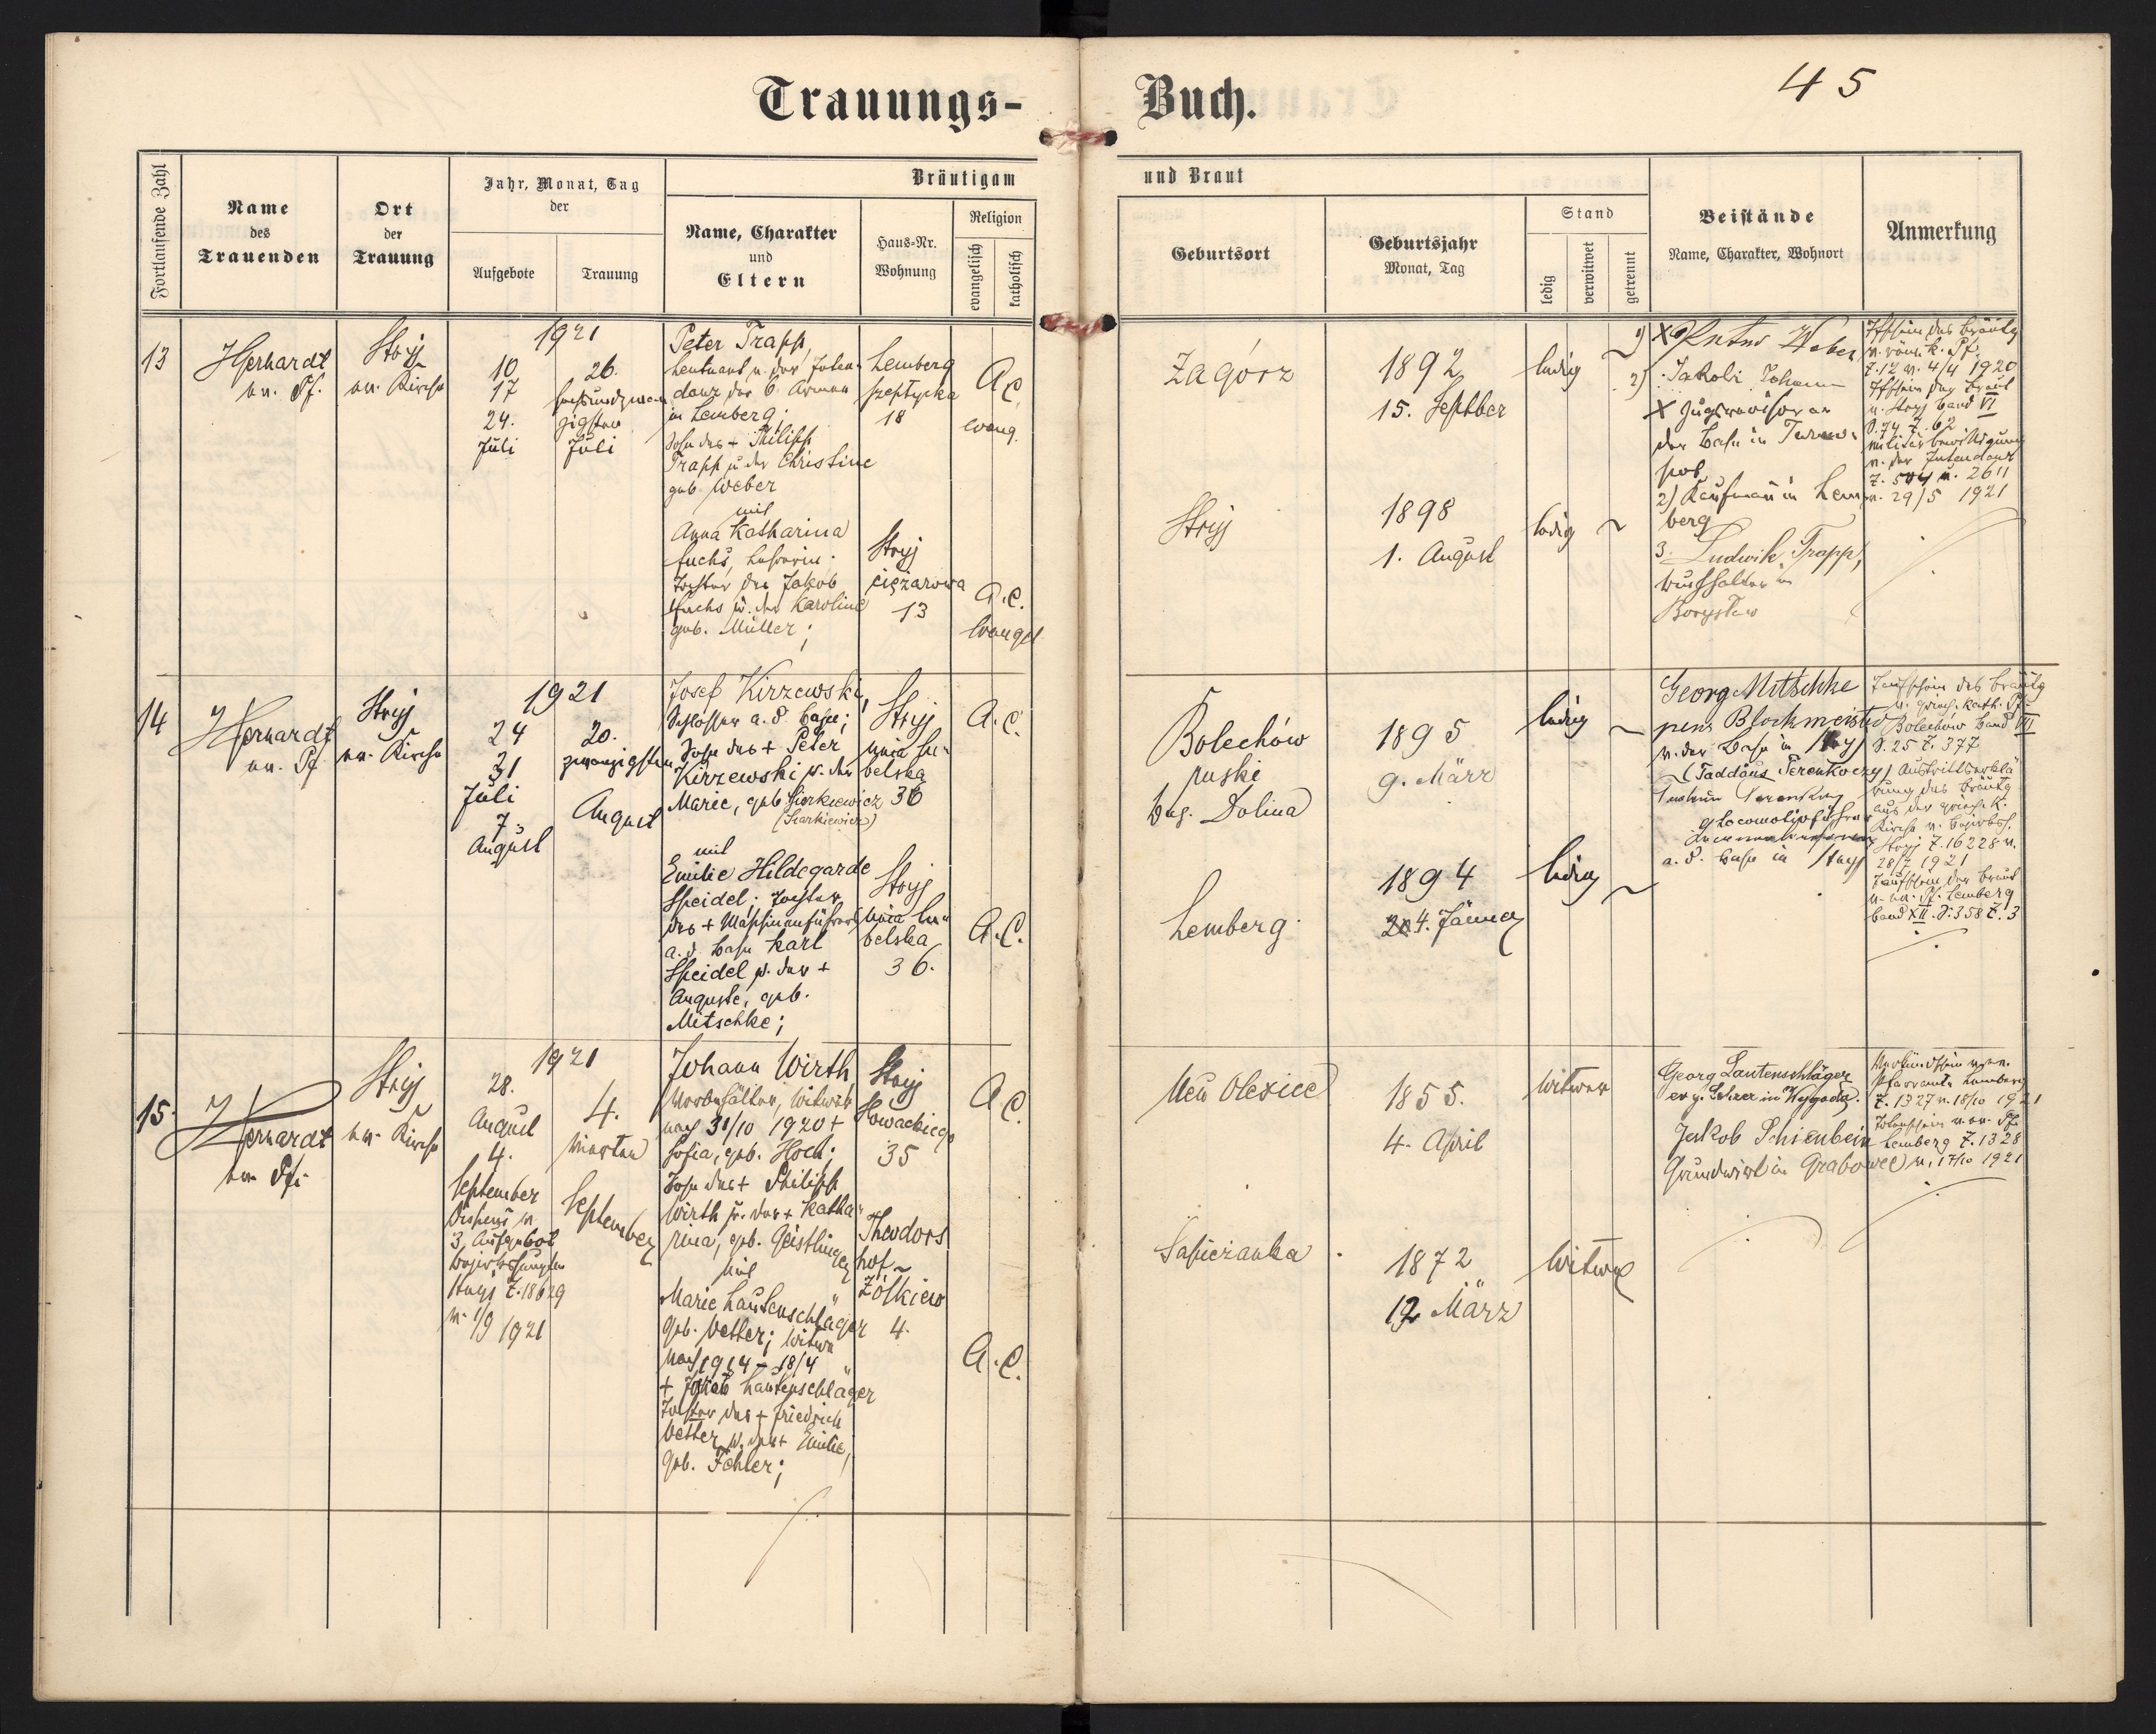 Trauungs-
Buch.
45
Fortlaufende Zahl
Name
des
Trauenden
Ort
der
Trauung
Jahr, Monat, Tag
der
Aufgebote
Trauung
Bräutigam
Name, Charakter
und
Eltern
Haus-Nr.
Wohnung
Religion
evangelisch
katholisch
und Braut
Geburtsort
Geburtsjahr
Monat, Tag
Stand
ledig
verwitwet
getrennt
Beistände
Name, Charakter, Wohnort
Anmerkung
13
ev. Pf.
Stryj
ev. Kirche
1921
10
17
24.
Juli
26.
Juli
Peter Trapp,
Leutnant u. der Inten-
danz der 6. Armee
in Lemberg;
Sohn des + Philipp
Trapp u der Christine
geb. Weber
mit
Anna Katharina
Fuchs, Lehrerin;
Tochter des Jakob
Fuchs u. der Karoline
geb. Müller;
Lemberg
szeptycka
18
Stryj
ciężarowa
13
A.C.
evang.
A.C.
Evangel
Zagórz
Stryj
1892
15. Septber
1898
1. August
ledig
ledig
1)
Weber
2) Jakobi Johann
der Bahn in
2) Kaufmann in Lem-
berg
3. Ludwik Trapp,
Buchhalter in
Borysław
Z. 12 v. 4/4 1920
v. Stryj Band VI
S. 74 Z. 62
v. der Intendanz
v. 29/5 1921
14
ev. Pf.
Stryj
ev. Kirche
1921
24
31
Juli
7.
August
20.
zwanzigsten
August
Josef Kirzewski,
Schlosser a. d. Bahn;
Sohn des + Peter
Kirzewski u. der
Marie, geb. Siarkiewicz
(Siarkiewicz)
mit
Emilie Hildegarde
Speidel; Tochter
des + Maschinenführers
a. d. Bahn Karl
Speidel u. der +
Auguste, geb.
Mitschke;
Stryj
belska
36
Stryj
belska
36.
A.C.
A.C.
Bolechów
ruski
Bez. Dolina
Lemberg
1895
9. März
1894
4. Jänner
ledig
ledig
Georg Mitschke
pens Blockmeister
v. der Bahn in Stryj
Locomotivführer
a. d. Bahn in Stryj
Taufschein des Bräutg
v. griech. kath. Pf.
Bolechów Band VIII
S. 25 Z. 377
Austrittserklä
rung des Bräutg
aus der griech. k.
Kirche v. Bezirksh.
Stryj Z. 16228 v.
28/7 1921
Taufschein der Braut
v. ev. Pf. Lemberg
Band XII. S. 358 Z. 3
15.
ev. Pf.
Stryj
ev. Kirche
1921
28.
August
4.
September
Dispens v.
3. Aufgebot
Stryj Z. 18629
v. 1/9 1921
4.
vierten
September
Johann Wirth
Witwer
nach 31/10 1920 +
Sofia, geb. Hoch;
Sohn des + Philipp
Wirth u. der + Katha-
rina, geb. Geistlinger
mit
Marie Lautenschläger
geb. Vetter; Witwe
nach 1914 - 18/4
+ Jakob Lautenschläger
Tochter des + Friedrich
Vetter u. der + Emilie,
geb. Föhler;
Stryj
Słowackiego
35
Theodors
hof
Żółkiew
4.
A.C.
A.C.
Neu Olexice
Sapieżanka
1855.
4. April
1872
12 März
Witwer
Witwe
Georg Lautenschläger
ev. Lehrer in Wygoda.
Jakob Schienbein
Grundwirt in Grabowce
Pfarramte Lemberg
Z. 1327 v. 18/10 1921
Totenschein v. ev. Pf.
Lemberg Z. 1328
v. 17/10 1921